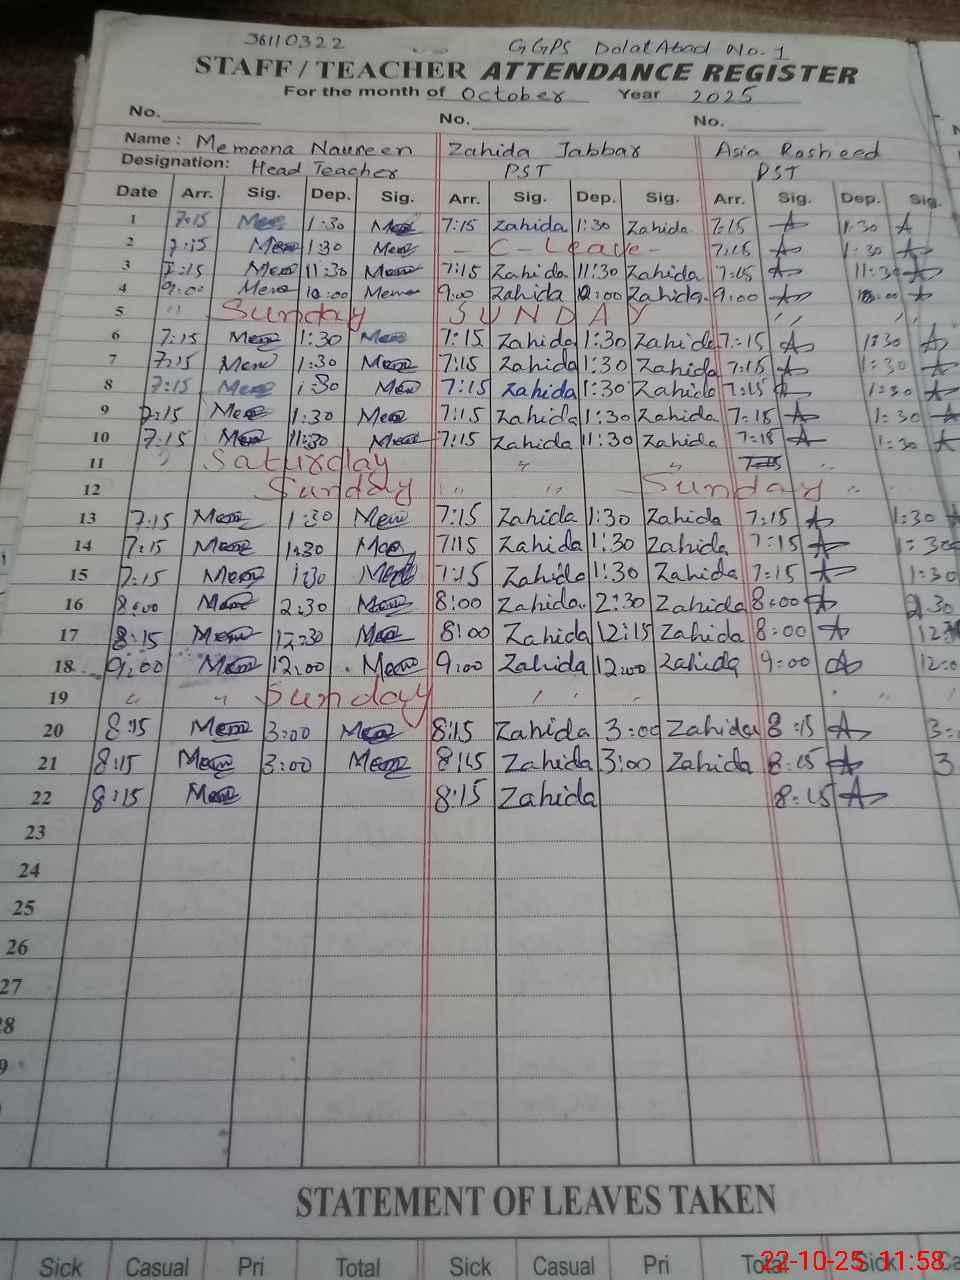 36110322 GGPS Dolat Abad No. 1
STAFF / TEACHER ATTENDANCE REGISTER
For the month of October Year 2025
No. No. No.
Name : Memoona Naureen Zahida Jabbar Asia Rasheed
Designation: Head Teacher PST PST
Date Arr. Sig. Dep. Sig. Arr. Sig. Dep. Sig. Arr. Sig. Dep. Sig.
1 7:15 1:30 7:15 Zahida 1:30 Zahida 7:15 1:30
2 7:15 1:30 - C - Leave - 7:15 1:30
3 7:15 11:30 7:15 Zahida 11:30 Zahida 7:15 11:30
4 9:00 9:00 Zahida Zahida. 9:00
5 " Sunday SUNDAY " "
6 7:15 1:30 7:15 Zahida 1:30 Zahida 7:15 1:30
7 7:15 1:30 7:15 Zahida 1:30 Zahida 7:15 1:30
8 7:15 1:30 7:15 Zahida 1:30 Zahida 7:15 1:30
9 7:15 1:30 7:15 Zahida 1:30 Zahida 7:15 1:30
10 7:15 11:30 7:15 Zahida 11:30 Zahida 7:15 1:30
11 " Saturday " " "
12 Sunday " " Sunday "
13 7:15 1:30 7:15 Zahida 1:30 Zahida 7:15 1:30
14 7:15 1:30 7:15 Zahida 1:30 Zahida 7:15 1:30
15 7:15 1:30 7:15 Zahida 1:30 Zahida 7:15 1:30
16 8:00 2:30 8:00 Zahida. 2:30 Zahida 8:00 2:30
17 8:15 12:30 8:00 Zahida 12:15 Zahida 8:00
18 9:00 12:00 9:00 Zahida 12:00 Zahida 9:00
19 " " Sunday
20 8:15 3:00 8:15 Zahida 3:00 Zahida 8:15
21 8:15 3:00 8:15 Zahida 3:00 Zahida 8:15
22 8:15 8:15 Zahida 8:15
23
24
25
26
27
28
STATEMENT OF LEAVES TAKEN
Sick Casual Pri Total Sick Casual Pri Total Sick
22-10-25 11:58